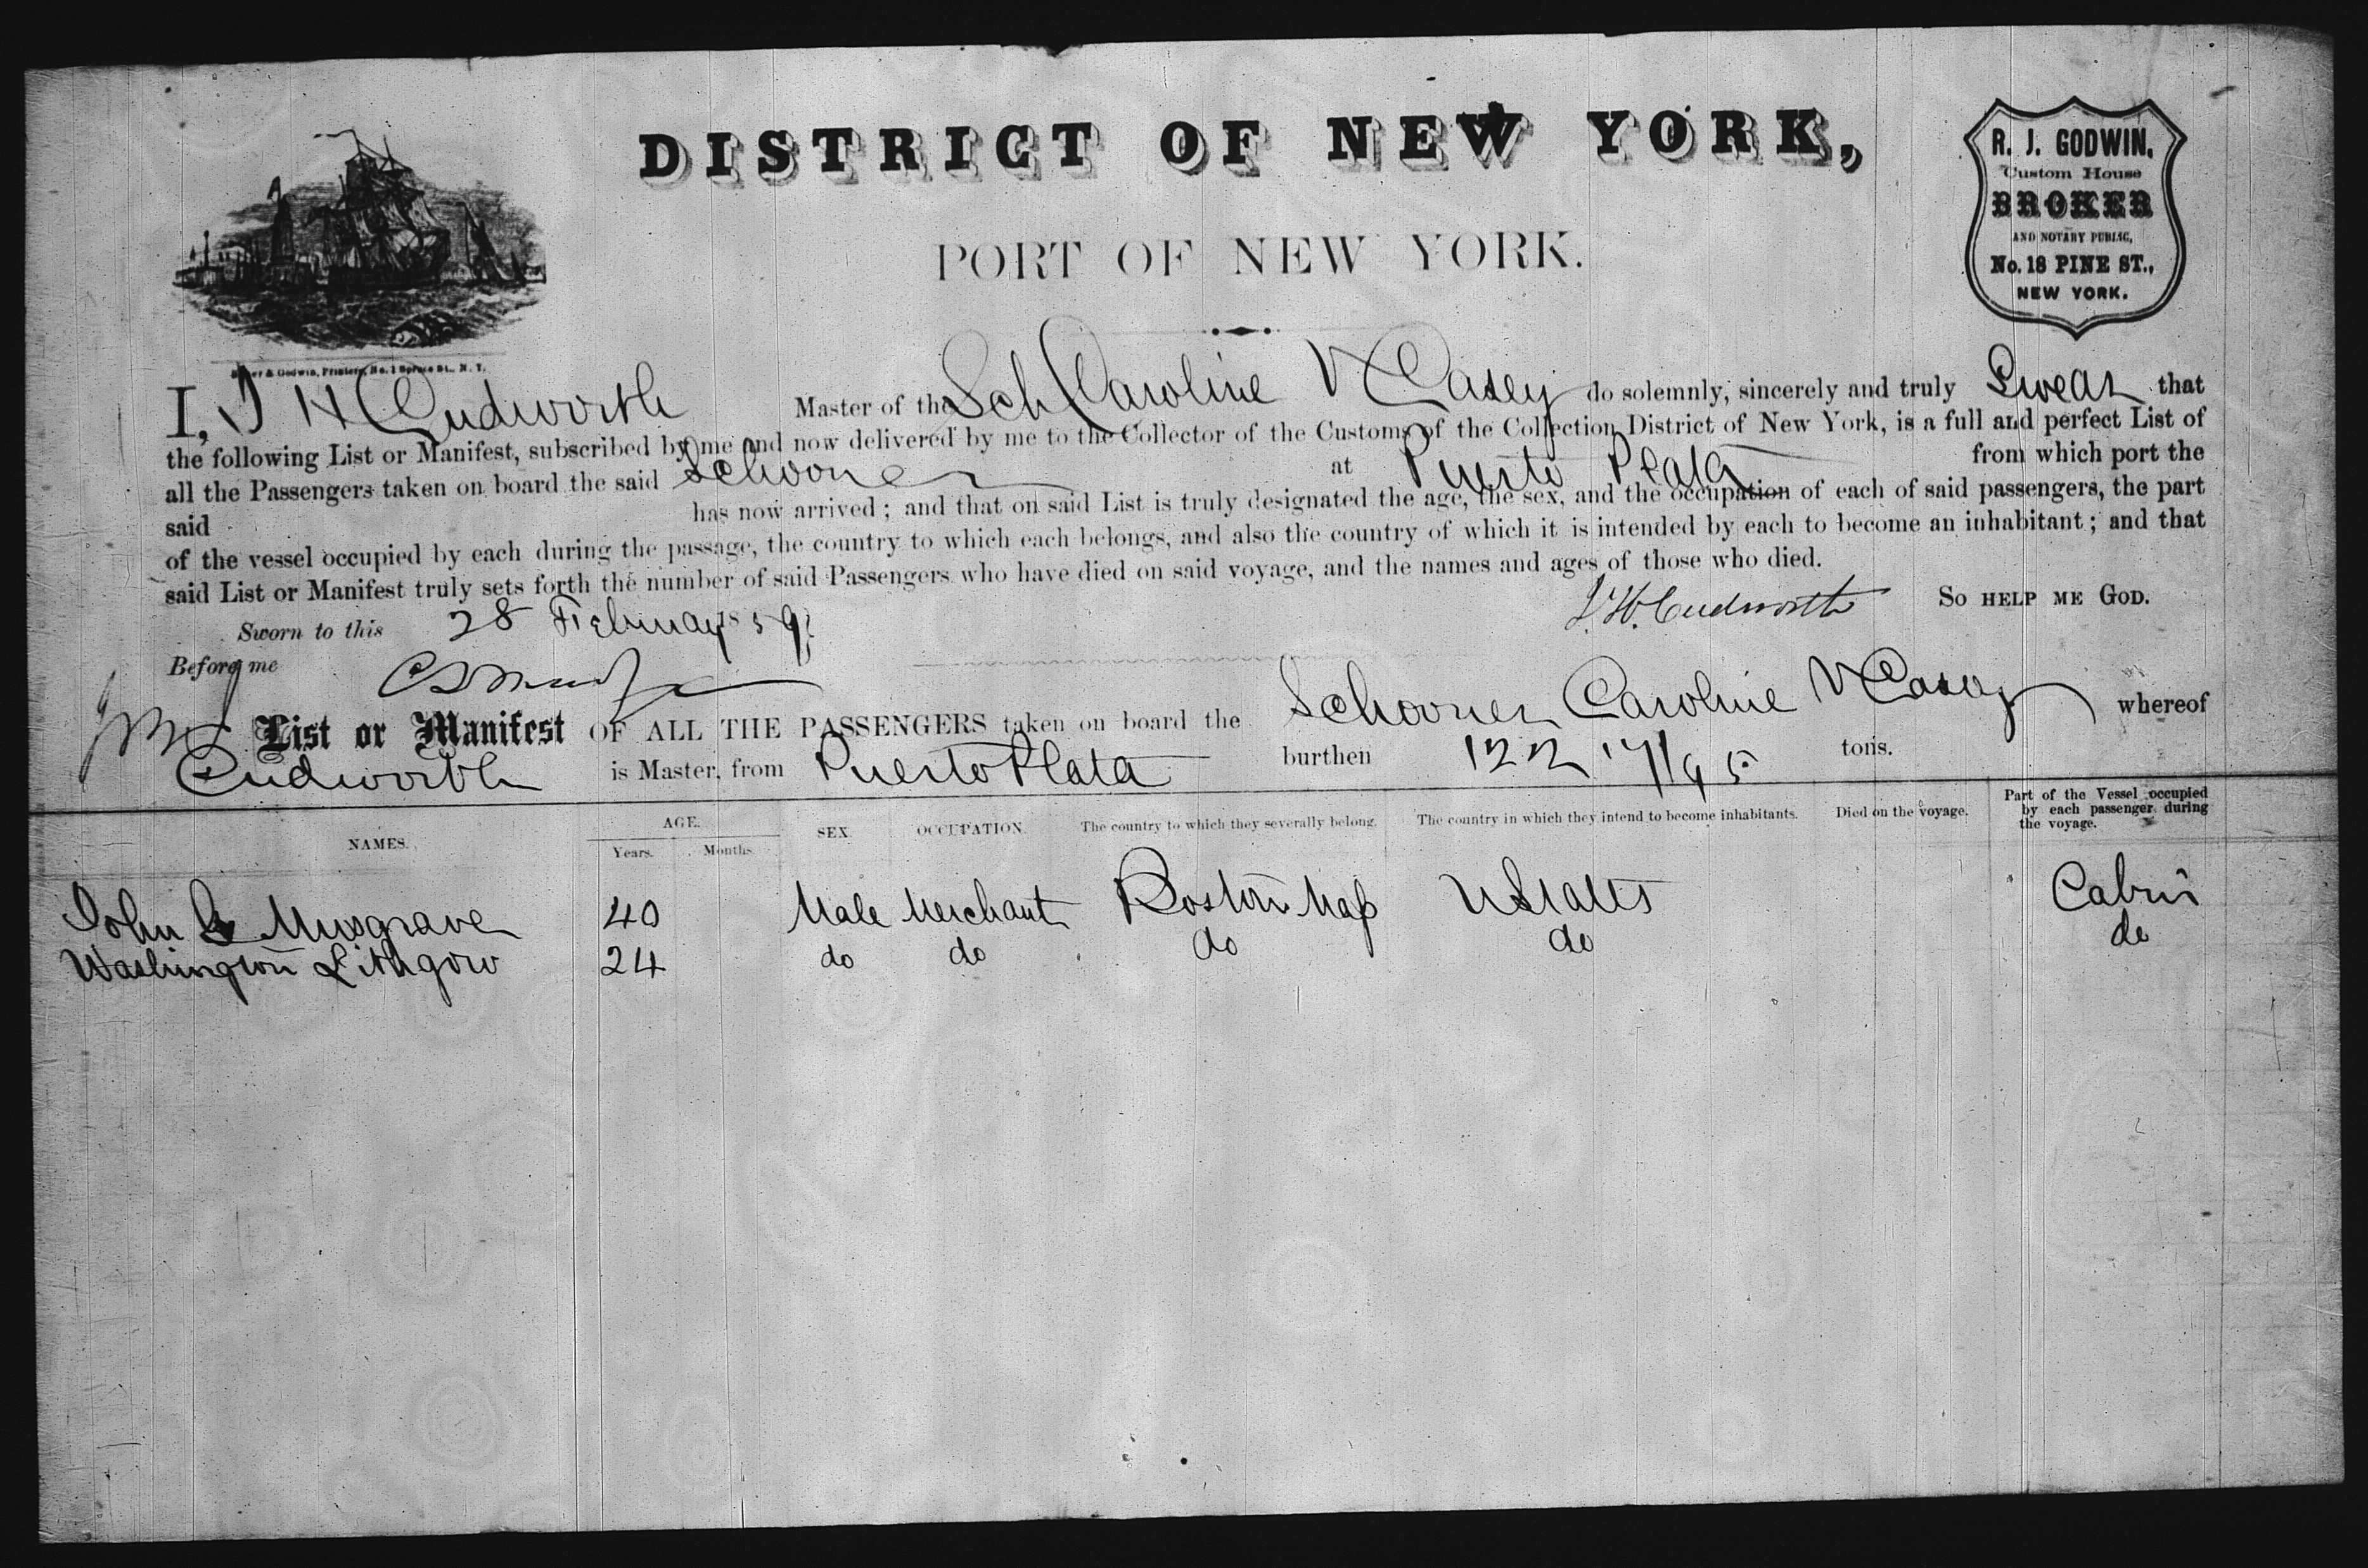 DISTRICT OF NEW YORK,
PORT OF NEW YORK.
R. J. GODWIN,
Custom House
BROKER
AND NOTARY PUBLIC,
No. 18 PINE ST.,
NEW YORK.
& Godwin, Printers, No. 1 Spruce St., N. Y.
I, J H Cudworth Master of the Sch Caroline V Casey do solemnly, sincerely and truly Swear that
the following List or Manifest, subscribed by me and now delivered by me to the Collector of the Customs of the Collection District of New York, is a full and perfect List of
all the Passengers taken on board the said Schooner at Puerto Plata from which port the
said has now arrived; and that on said List is truly designated the age, the sex, and the occupation of each of said passengers, the part
of the vessel occupied by each during the passage, the country to which each belongs, and also the country of which it is intended by each to become an inhabitant; and that
said List or Manifest truly sets forth the number of said Passengers who have died on said voyage, and the names and ages of those who died.
Sworn to this 28 February 1859 J. H. Cudworth SO HELP ME GOD.
Before me
List or Manifest OF ALL THE PASSENGERS taken on board the Schooner Caroline V Casey whereof
Cudworth is Master, from Puerto Plata burthen 122 17/95 tons.
NAMES. AGE. Years. Months. SEX. OCCUPATION. The country to which they severally belong. The country in which they intend to become inhabitants. Died on the voyage. Part of the Vessel occupied by each passenger during the voyage.
John Musgrave 40 Male Merchant Boston Mass U States Cabin
Washington Lithgow 24 do do do do do